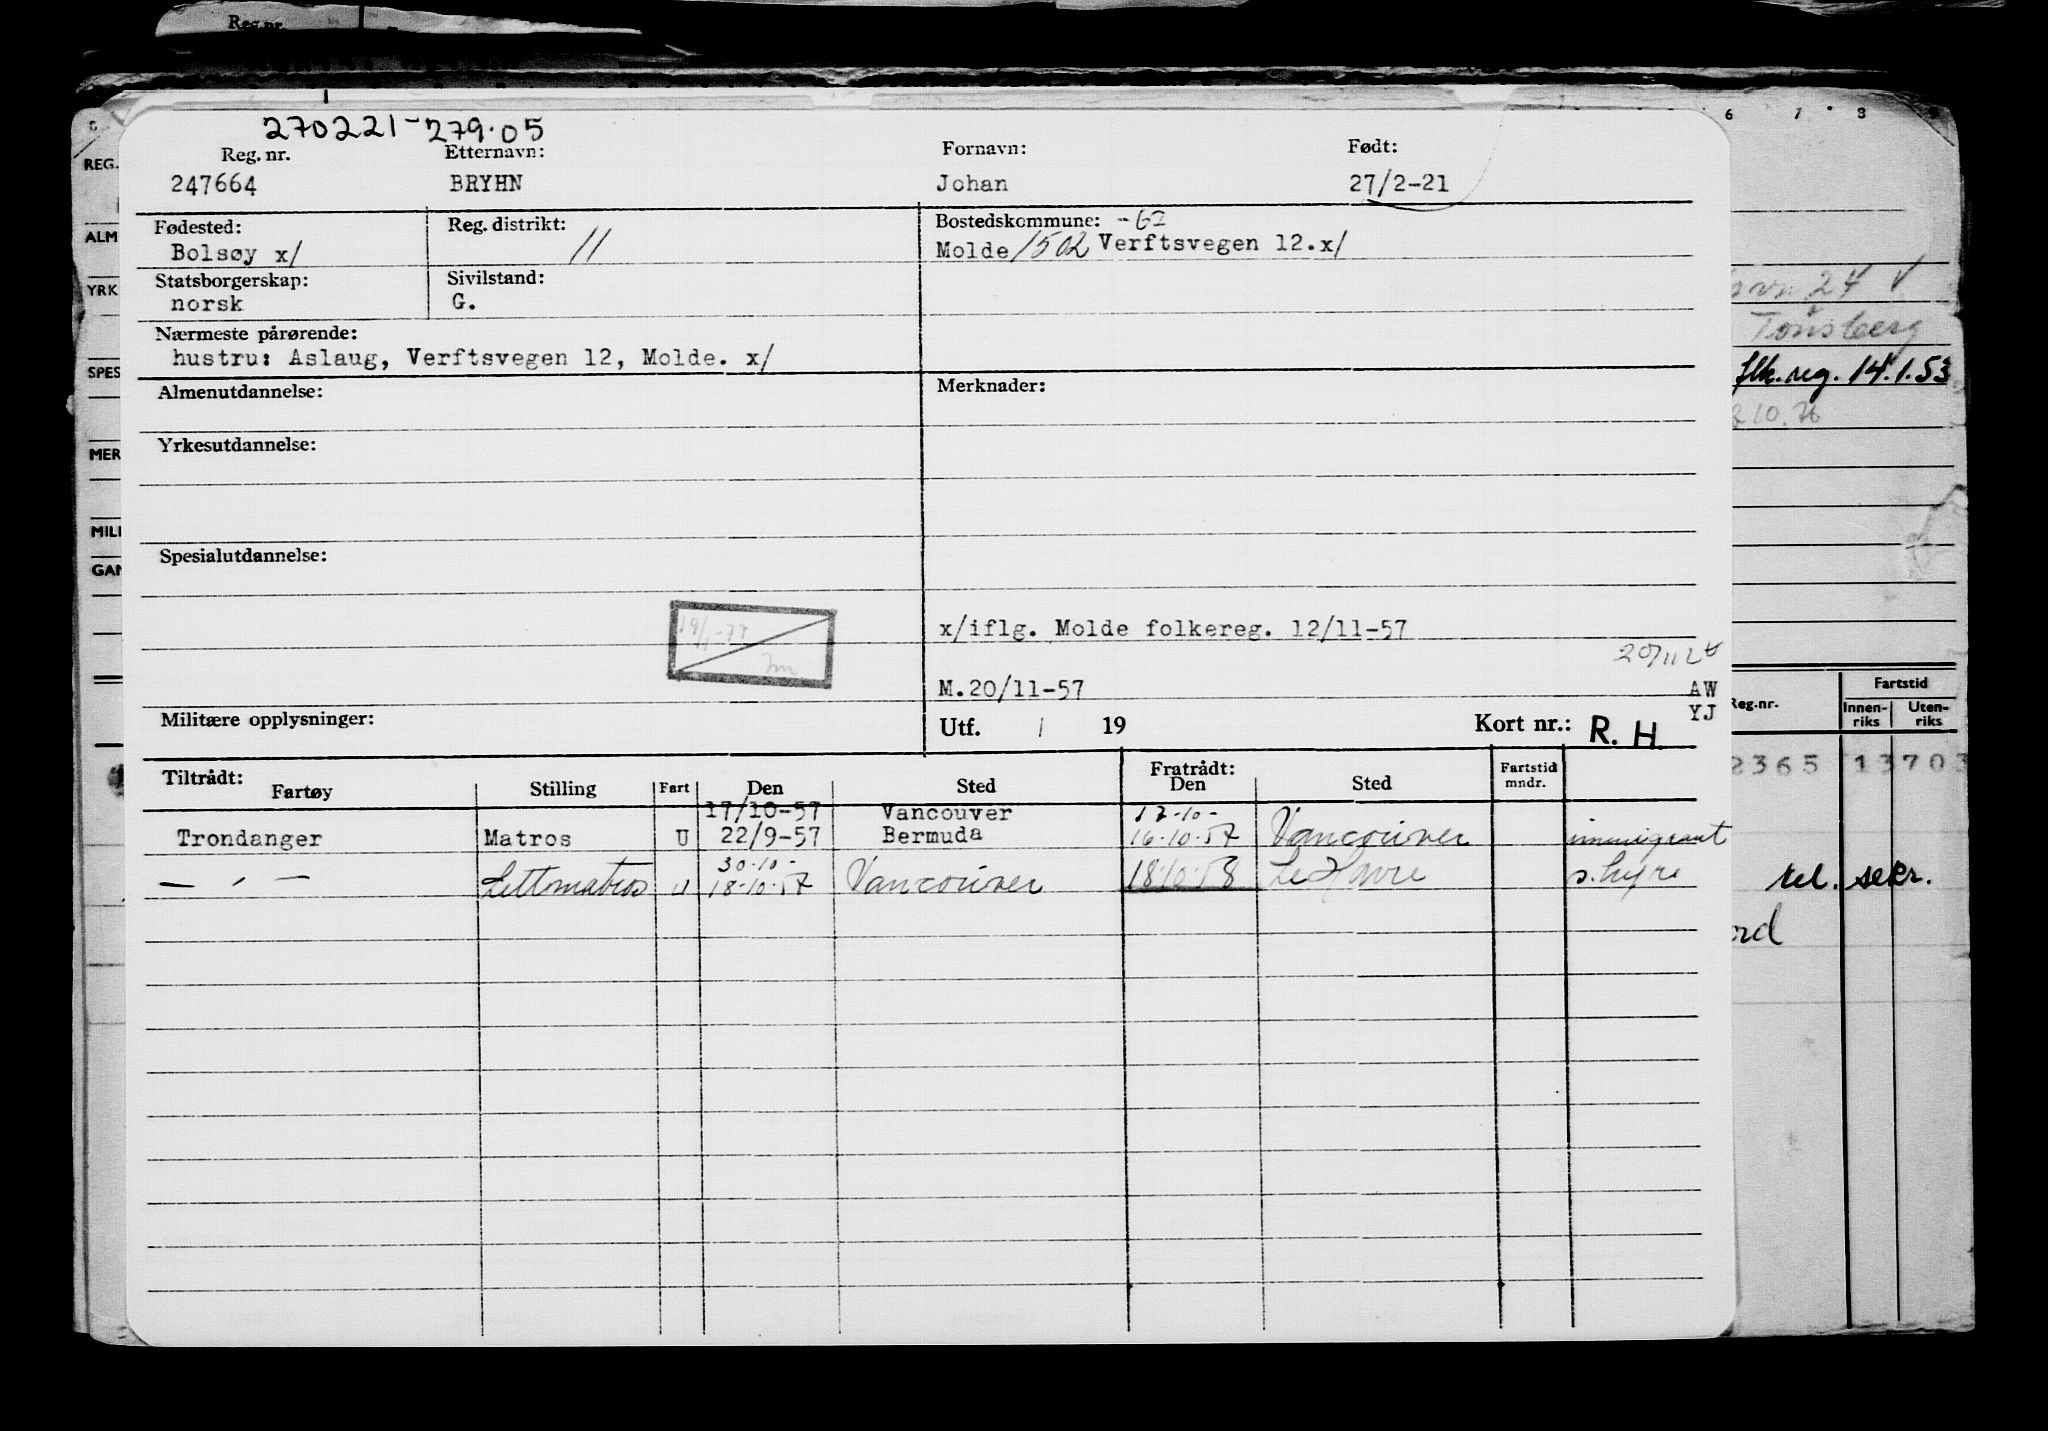 Reg.nr.
270221-279.05
Reg. nr. Etternavn: Fornavn: Født:
247664 BRYHN Johan 27/2-21
Fødested: Reg. distrikt: Bostedskommune: -61
Bolsøy x/ 11 Molde 1502 Verftsvegen 12.x/
Statsborgerskap: Sivilstand:
norsk G.
Nærmeste pårørende:
hustru: Aslaug, Verftsvegen 12, Molde. x/
Almenutdannelse: Merknader:
Yrkesutdannelse:
Spesialutdannelse:
x/iflg. Molde folkereg. 12/11-57
19/1-77
M.20/11-57 AW
YJ
Militære opplysninger: Utf. / 19 Kort nr.: R. H.
Tiltrådt: Fratrådt:
Fartøy Stilling Fart Den Sted Den Sted Fartstid mndr.
17/10-57 Vancouver 17-10-
Trondanger Matros U 22/9-57 Bermuda 16.10.57 Vancouver immigrant
30.10-
— " — Lettmatros U 18.10.57 Vancouver 18.10.58 Le Havre s. hyre
6 7 8
REG.
ALM
YRK 24 V
Tønsberg
SPES flk. reg. 14.1.53
10.76
MER
MILI
GAN
Fartstid
Reg.nr. Innen-riks Uten-riks
2365 13703
tel. sekr.
ord